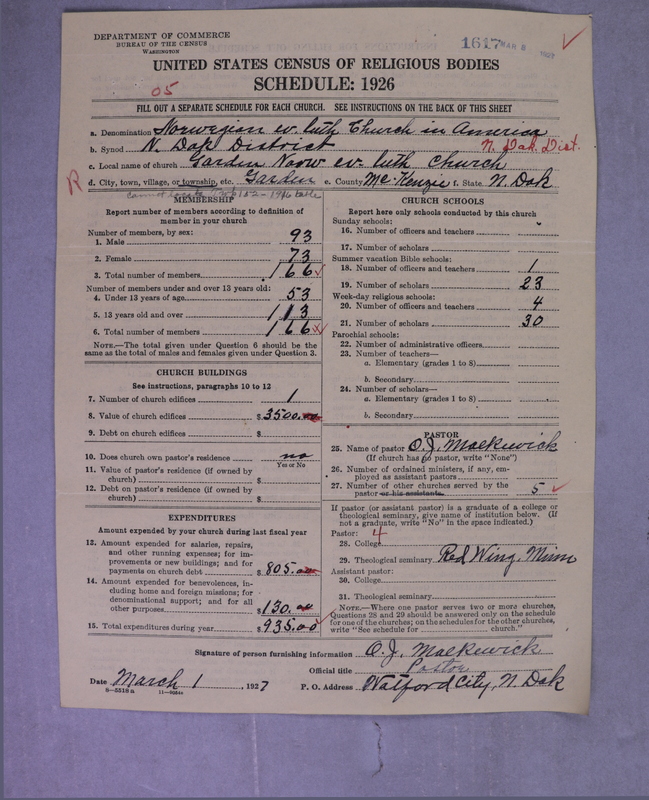 DEPARTMENT OF COMMERCE
BUREAU OF THE CENSUS
WASHINGTON
1617 MAR 8 1927
UNITED STATES CENSUS OF RELIGIOUS BODIES
SCHEDULE: 1926
05
FILL OUT A SEPARATE SCHEDULE FOR EACH CHURCH. SEE INSTRUCTIONS ON THE BACK OF THIS SHEET
a. Denomination Norwegian ev. luth Church in America
b. Synod N. Dak District N. Dak. Dist.
c. Local name of church Garden Norw ev. luth Church
R d. City, town, village, or township, etc. Garden e. County Mc Kenzie f. State N. Dak
cannot locate Twp 152-1916 table
MEMBERSHIP
Report number of members according to definition of
member in your church
Number of members, by sex:
1. Male 93
2. Female 73
3. Total number of members 166
Number of members under and over 13 years old:
4. Under 13 years of age 53
5. 13 years old and over 113
6. Total number of members 166
NOTE.—The total given under Question 6 should be the
same as the total of males and females given under Question 3.
CHURCH BUILDINGS
See instructions, paragraphs 10 to 12
7. Number of church edifices 1
8. Value of church edifices $3500.00
9. Debt on church edifices $
10. Does church own pastor's residence? no
Yes or No
11. Value of pastor's residence (if owned by
church) $
12. Debt on pastor's residence (if owned by
church) $
EXPENDITURES
Amount expended by your church during last fiscal year
13. Amount expended for salaries, repairs,
and other running expenses; for im-
provements or new buildings; and for
payments on church debt $805.00
14. Amount expended for benevolences, in-
cluding home and foreign missions; for
denominational support; and for all
other purposes $130.00
15. Total expenditures during year $935.00
CHURCH SCHOOLS
Report here only schools conducted by this church
Sunday schools:
16. Number of officers and teachers
17. Number of scholars
Summer vacation Bible schools:
18. Number of officers and teachers 1
19. Number of scholars 23
Week-day religious schools:
20. Number of officers and teachers 4
21. Number of scholars 30
Parochial schools:
22. Number of administrative officers
23. Number of teachers—
a. Elementary (grades 1 to 8)
b. Secondary
24. Number of scholars—
a. Elementary (grades 1 to 8)
b. Secondary
PASTOR
25. Name of pastor O. J. Malkewick
(If church has no pastor, write "None")
26. Number of ordained ministers, if any, em-
ployed as assistant pastors
27. Number of other churches served by the
pastor or his assistants 5
If pastor (or assistant pastor) is a graduate of a college or
theological seminary, give name of institution below. (If
not a graduate, write "No" in the space indicated.)
Pastor: 4
28. College
29. Theological seminary Red Wing, Minn
Assistant pastor:
30. College
31. Theological seminary
NOTE.—Where one pastor serves two or more churches,
Questions 28 and 29 should be answered only on the schedule
for one of the churches; on the schedules for the other churches,
write "See schedule for church."
Signature of person furnishing information O. J. Malkewick
Official title Pastor
Date March 1, 1927 P. O. Address Watford City, N. Dak
8—5518a